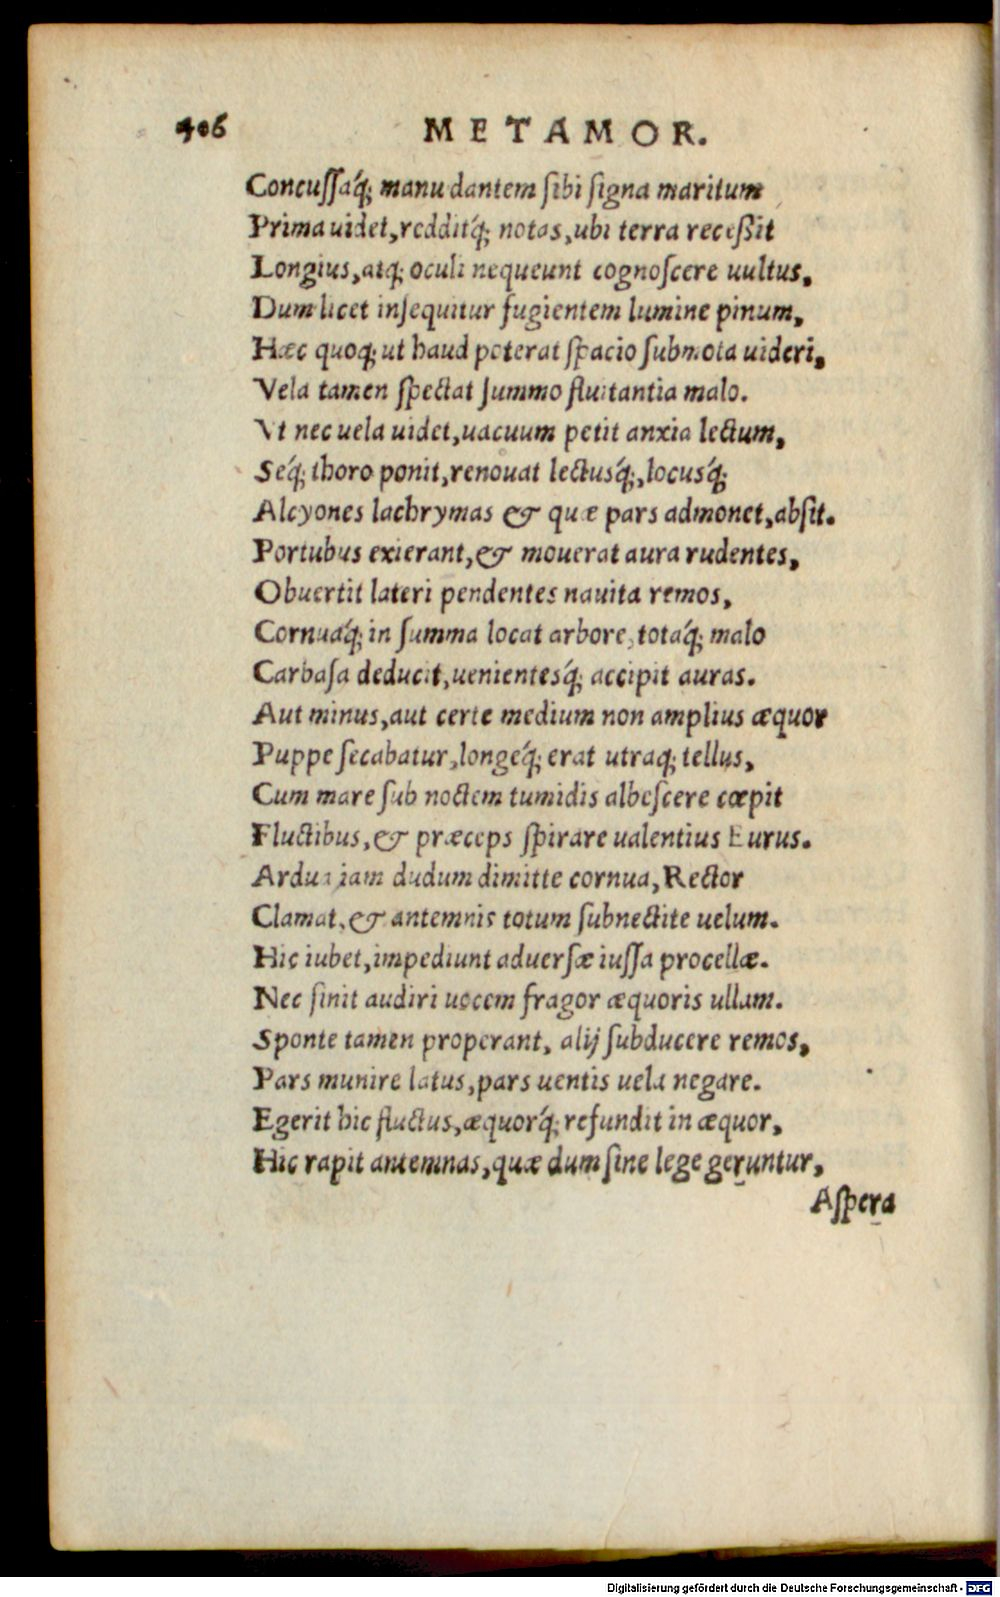 406 METAMOR.
Concuſſaq́; manu dantem ſibi ſigna maritum
Prima uidet, redditq́; notas, ubi terra receßit
Longius, atq; oculi nequeunt cognoſcere uultus,
Dum licet inſequitur fugientem lumine pinum,
Hæc quoq; ut haud poterat ſpacio ſubmota uideri,
Vela tamen ſpectat ſummo fluitantia malo.
Vt nec uela uidet, uacuum petit anxia lectum,
Seq́; thoro ponit, renouat lectusq́;, locusq́;
Alcyones lachrymas & quæ pars admonet, abſit.
Portubus exierant, & mouerat aura rudentes,
Obuertit lateri pendentes nauita remos,
Cornuaq́; in ſumma locat arbore, totaq́; malo
Carbaſa deducit, uenientesq́; accipit auras.
Aut minus, aut certe medium non amplius æquor
Puppe ſecabatur, longeq́; erat utraq; tellus,
Cum mare ſub noctem tumidis albeſcere cœpit
Fluctibus, & præceps ſpirare ualentius Eurus.
Ardua iam dudum dimitte cornua, Rector
Clamat, & antemnis totum ſubnectite uelum.
Hic iubet, impediunt aduerſæ iuſſa procellæ.
Nec ſinit audiri uocem fragor æquoris ullam.
Sponte tamen properant, alij ſubducere remos,
Pars munire latus, pars uentis uela negare.
Egerit hic fluctus, æquorq́; refundit in æquor,
Hic rapit antemnas, quæ dum ſine lege geruntur,
Aſpera
Digitalisierung gefördert durch die Deutsche Forschungsgemeinschaft - DFG